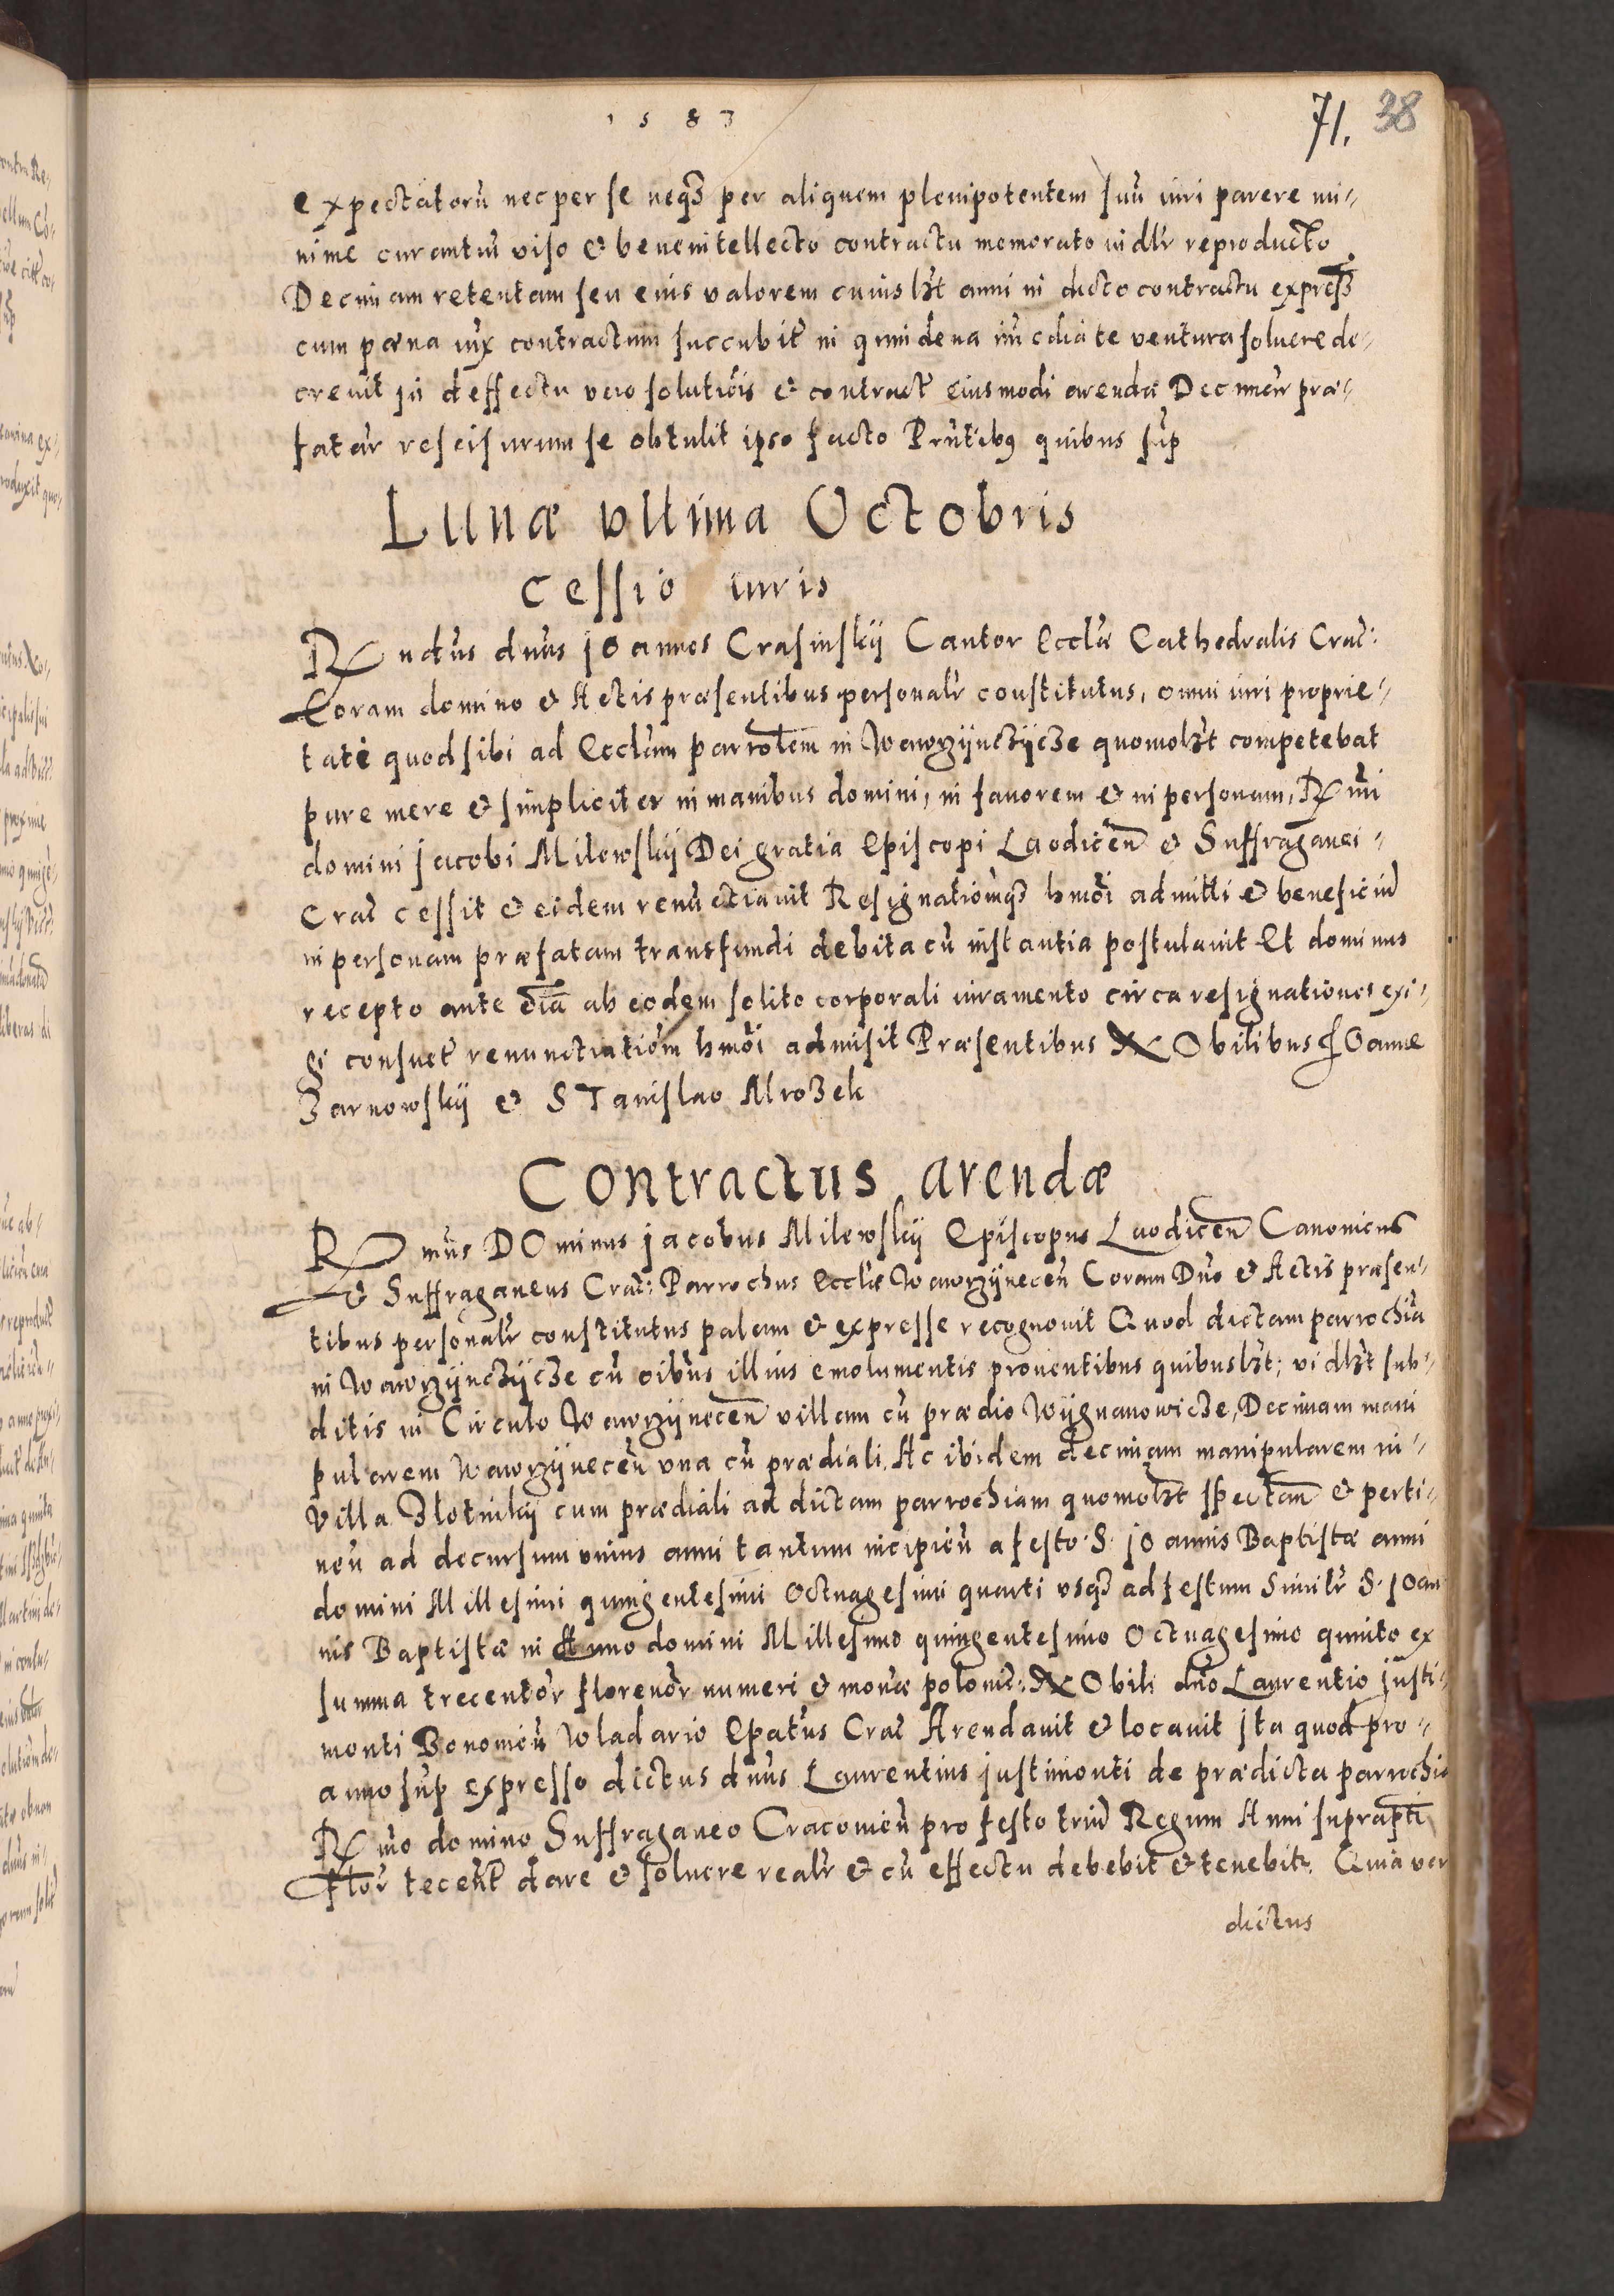 1583
71. 38
expectatorũ nec per se neqȝ per aliquem plenipotentem suũ iuri parere mi-
nime curantiũ viso & bene intellecto contractu memorato iudlr reproducto
Decimam retentam seu eius valorem cuiuslȝt anni in dicto contractu expressȝ
cum pœna iux contractum succubit in quindena im̃ediate ventura soluere de-
creuit in deffectu vero solutiõis & contract eiusmodi arendæ Decimar̃ præ-
fatar̃ rescisurum se obtulit ipso facto Prñtibus quibus sup̃
Lunæ vltima Octobris
Cessio iuris
Rndus dnus joannes Crasinskij Cantor Eccl̃æ Cathedralis Crac̃:
Coram domino & Actis præsentibus personalr̃ constitutus, omni iuri proprie-
tati quod sibi ad Eccl̃am parrolem in Wawrzÿnczÿcze quomolȝt competebat
pure mere & simpliciter in manibus domini, in fauorem & in personam, Rmi
domini jacobi Milewskij Dei gratia Episcopi Laodicen̄ & Suffraganei-
Crac̃ cessit & eidem renũctiauit Resignationẽqȝ hmõi admitti & beneficiũ
in personam præfatam transfundi debita cũ instantia postulauit Et dominus
recepto ante oĩa ab eodem solito corporali iuramento circa resignationes exi-
gi consuet̃ renunctiatiõm hmõi admisit Præsentibus NObilibus JOanne
Zarnowskij & STanislao Mrozek
Contractus arendæ
Rmus DOminus jacobus Milewskij Episcopus Laodicen̄ Canonicus
& Suffraganeus Crac̃: Parrochus Eccl̃æ Wawrzÿnecen̄ Coram Dño & Actis præsen-
tibus personalr̃ constitutus palam & expresse recognouit Quod dictam parrochiã
in Wawrzÿnczÿcze cũ oibus illius emolumentis prouentibus quibuslȝt; vidlȝt sub-
ditis in Circulo Wawrzÿnecen̄ villam cũ prædio Wÿgnanowicze, Decimam mani
pularem Wawrzÿnecen̄ vna cũ prædiali. Ac ibidem decimam manipularem in-
Villa Zlotnikij cum prædiali ad dictam parrochiam quomolȝt spectan̄ & perti-
nen̄ ad decursum vnius anni tantum incipien̄ a festo S. joannis Baptistæ anni
domini Millesimi quingentesimi Octuagesimi quarti vsqȝ ad festum Similr̃ S. joan
nis Baptistæ in Anno domini Millesimo quingentesimo Octuagesimo quinto ex
summa trecentor̃ florenor̃ numeri & monæ poloni: NObili dño Laurentio justi-
monti Bononien̄ Wladario Epatus Crac̃ Arendauit & locauit jta quod pro-
anno sup̃ expresso dictus dnus Laurentius justimonti de prædicta parrochia
Rmo domino Suffraganeo Cracouien̄ pro festo triũ Regum Anni suprapti
flor̃ tecent dare & soluere realr̃ & cũ effectu debebit & tenebitr. Quia ver
dictus